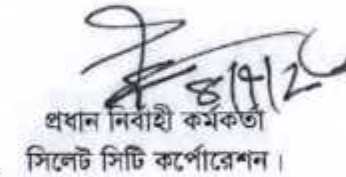 প্রধান নির্বাহী কর্মকর্তা
সিলেট সিটি কর্পোরেশন।